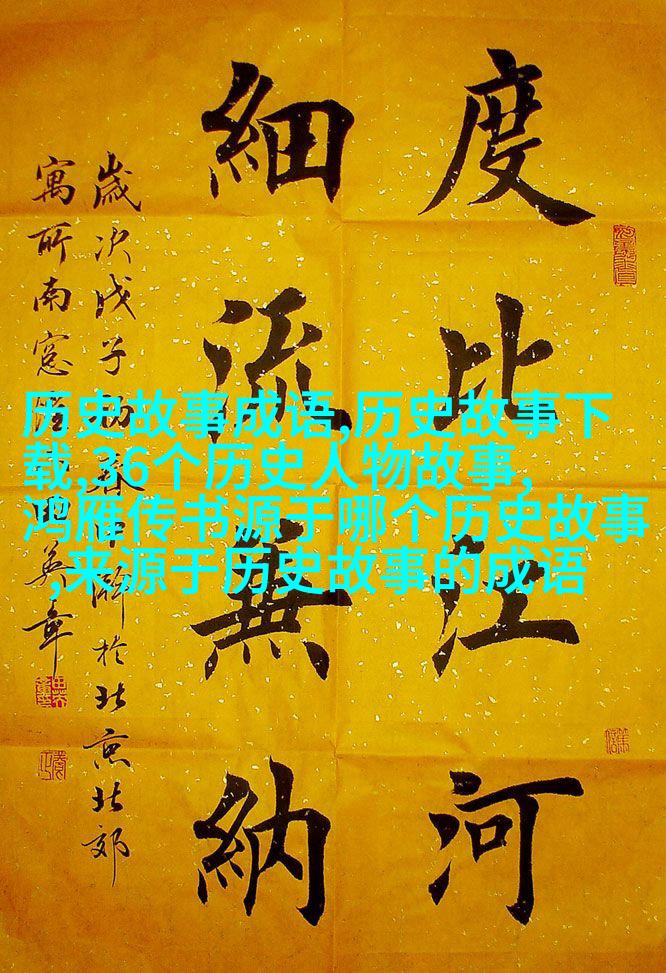 度比江河
細流兼納
歲次戊子初春中澣於北京北郊
寓所南窓田英章
历史故事成语,历史故事下
载,36个历史人物故事,
鸿雁传书源于哪个历史故事
,来源于历史故事的成语